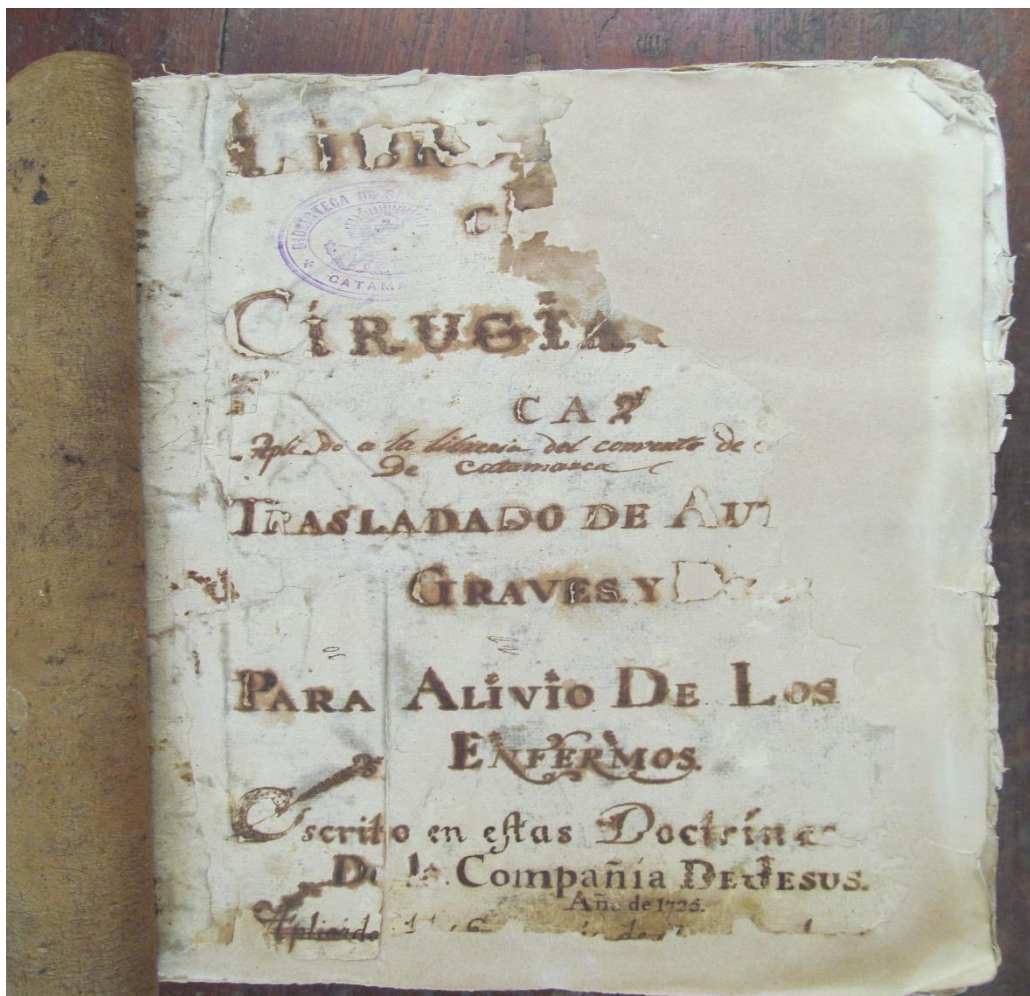 LIBR
BIBLIOTECA DE
CATAM
C
CIRUGÍA
CA
a la libreria del convento de
De Catamarca
TRASLADADO DE AU
GRAVES, Y D
PARA ALIVIO DE LOS
ENFERMOS.
Escrito en estas Doctrinas
De la Compañia DE JESUS.
Año de 1725.
Aplicado